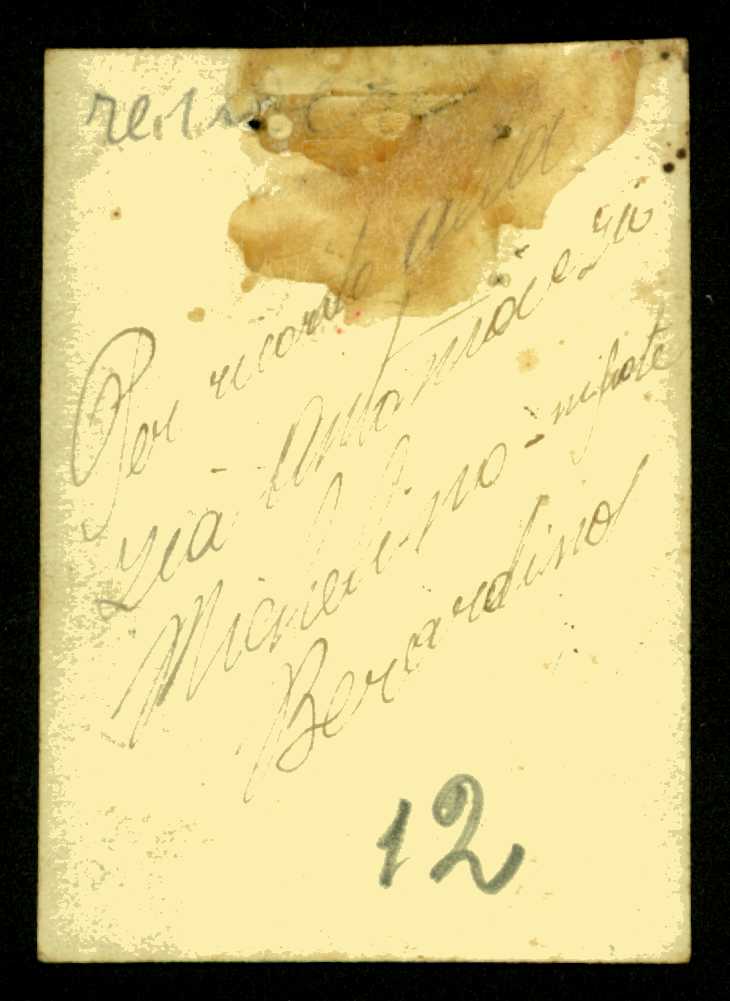 Per ricordo alla
zia Antonia e zio
Michelino - nipote
Berardino
12